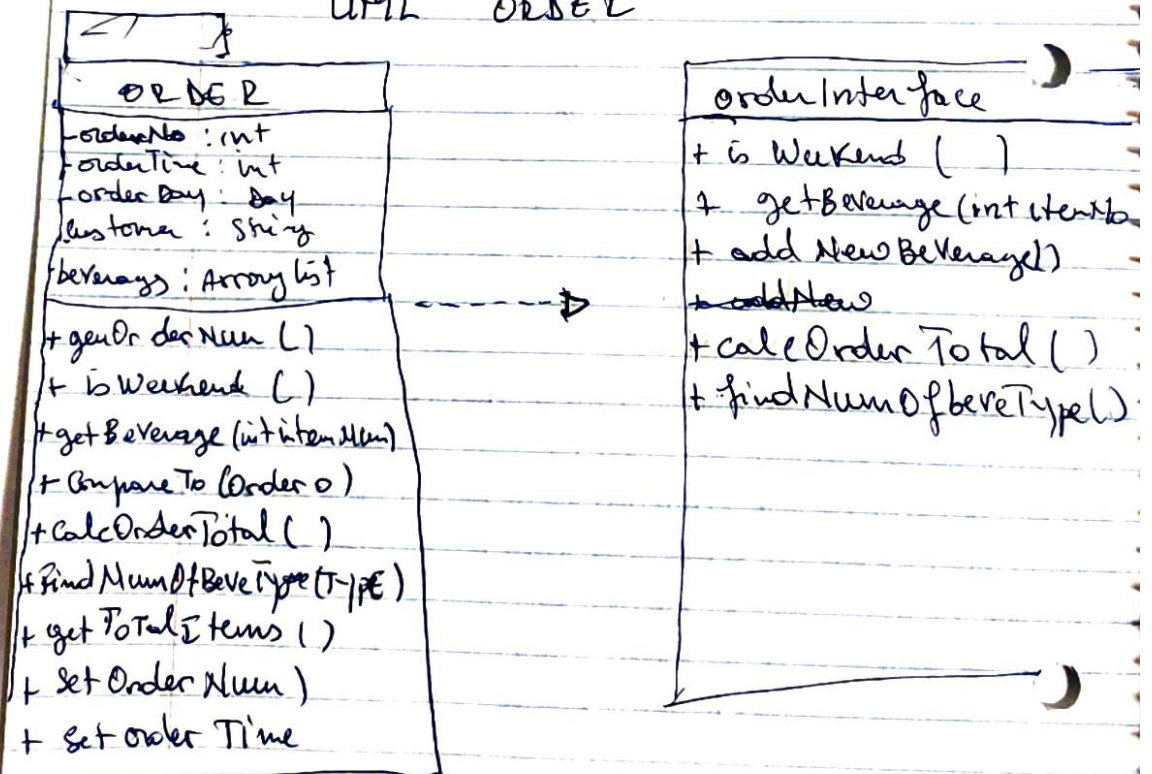 UML ORDER
ORDER
-orderNo : int
-orderTime : int
-order Day : Day
customer : String
-beverags : Array list
+ genOrderNum ()
+ isWeekend ()
+getBeverage (int itemNum)
+ CompareTo (Order o)
+ CalcOrderTotal ( )
+ Find NumOfBeveType (TypE)
+ get ToTalItems ()
+ Set Order Num )
+ Set order Time
order Interface
+ is Weekend ( )
+ getBeverage (int itemNo
+ add New Beverage()
+ addNew
+ calcOrder Total ( )
+ findNumOfbeveType()